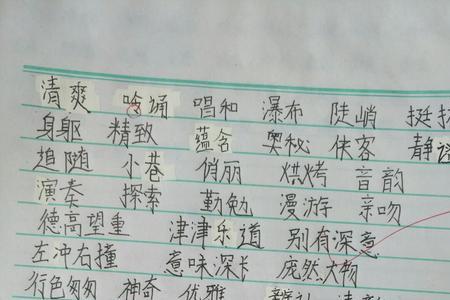 清爽 吟诵 唱和 瀑布 陡峭 挺
身躯 精致 蕴含 奥秘 侠客 静谧
追随 小巷 俏丽 烘烤 音韵
演奏 探索 勤勉 漫游 亲吻
德高望重 津津乐道 别有深意
左冲右撞 意味深长 庞然大物
行色匆匆 神奇 优雅